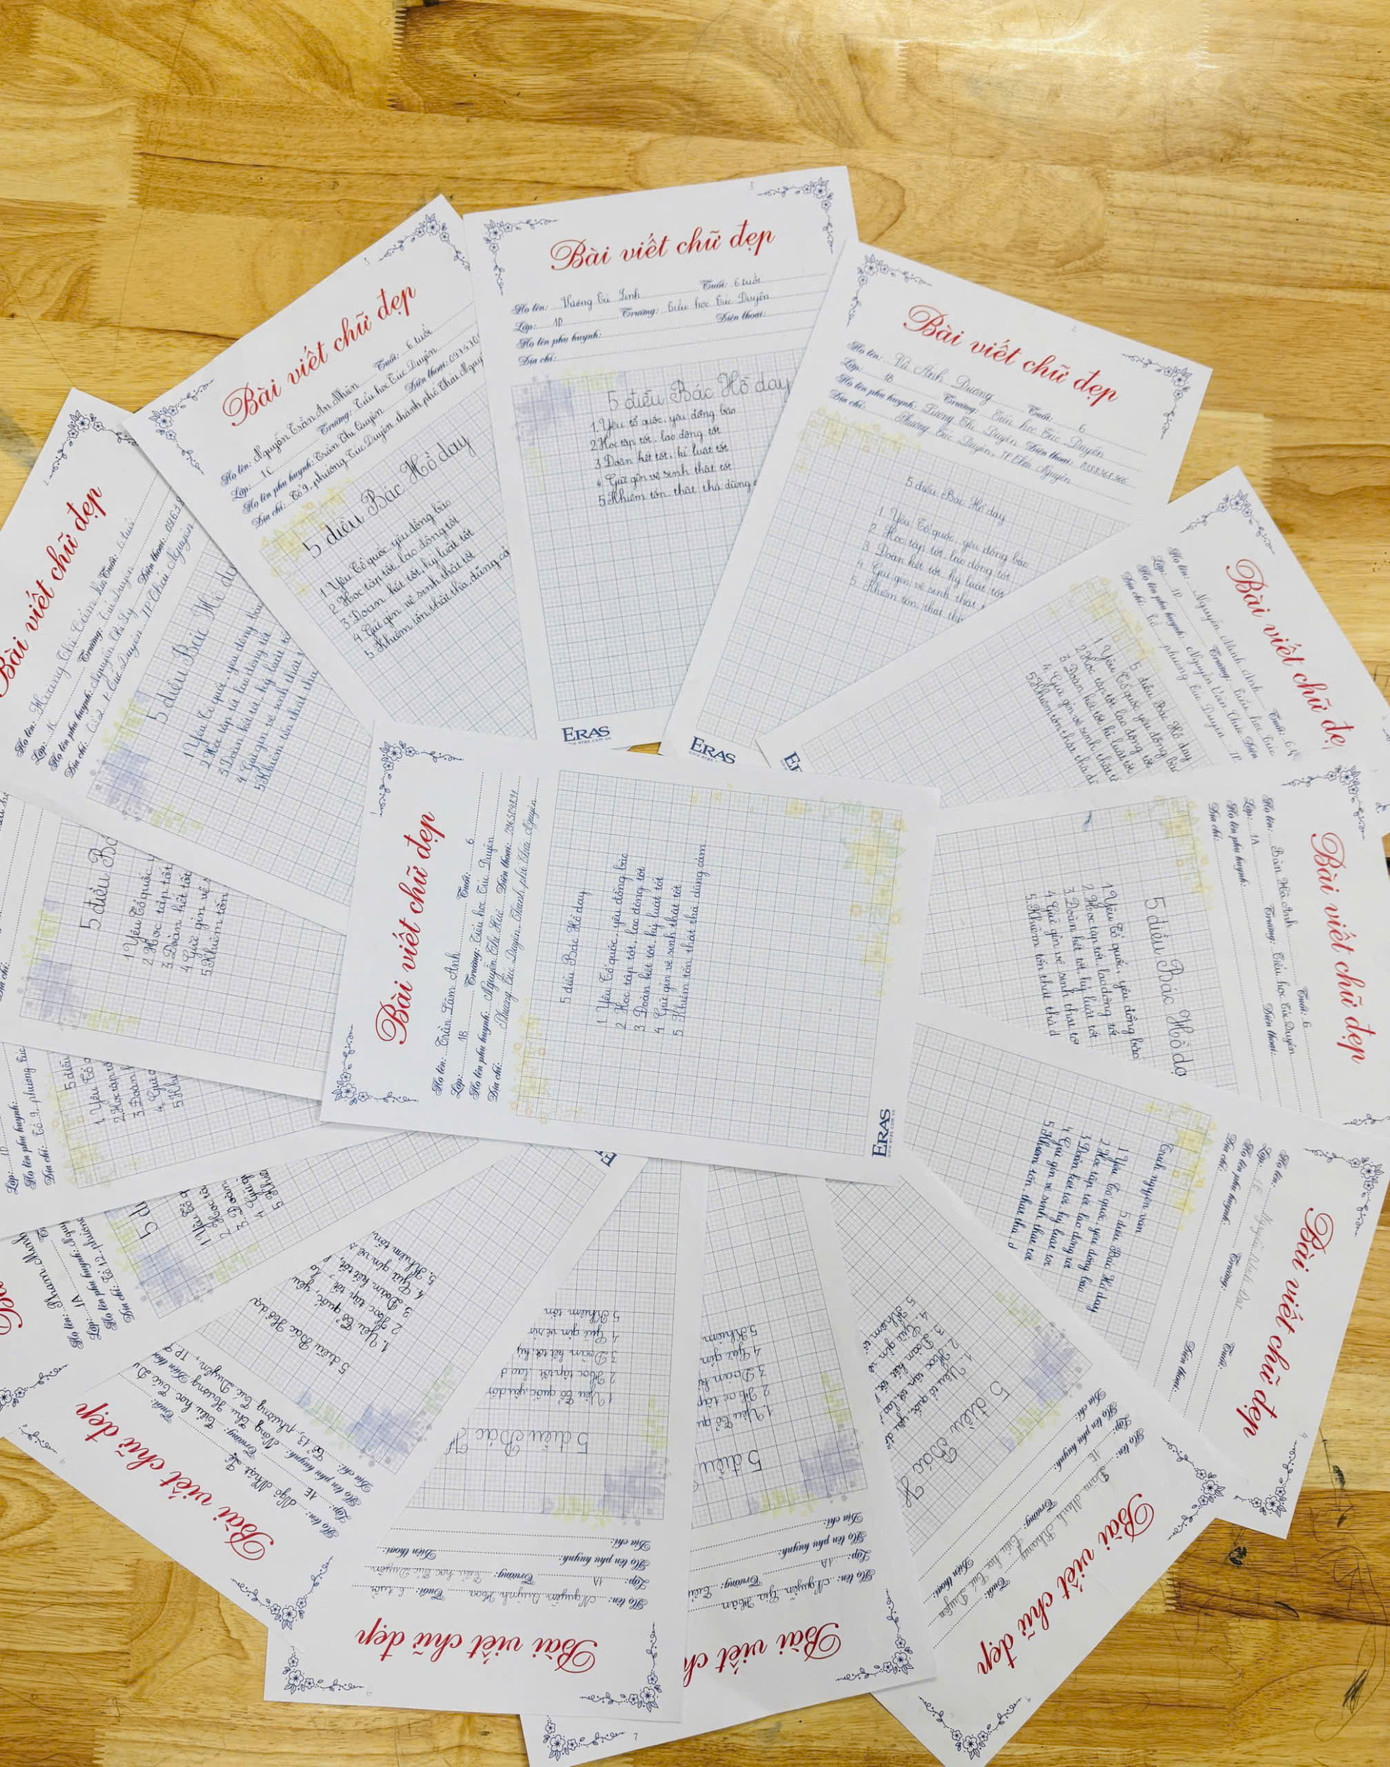 Bài viết chữ đẹp
Họ tên: Trần Lâm Anh Tuổi: 6
Lớp: 1B Trường: Tiểu học Túc Duyên
Họ tên phụ huynh: Nguyễn Thị Huế Điện thoại:
Địa chỉ: Phường Túc Duyên, Thành phố Thái Nguyên
5 điều Bác Hồ dạy
1. Yêu Tổ quốc, yêu đồng bào
2. Học tập tốt, lao động tốt
3. Đoàn kết tốt, kỷ luật tốt
4. Giữ gìn vệ sinh thật tốt
5. Khiêm tốn, thật thà, dũng cảm
ERAS
Bài viết chữ đẹp
Họ tên: Hoàng Thị Cẩm Tuổi: 6 tuổi
Lớp: Trường: Túc Duyên
Họ tên phụ huynh: Nguyễn Chi Ly Điện thoại:
Địa chỉ: Tổ 2 P. Túc Duyên TP Thái Nguyên
5 điều Bác Hồ dạy
1 Yêu Tổ quốc, yêu đồng bào
2 Học tập tốt, lao động tốt
3 Đoàn kết tốt, kỷ luật tốt
4 Giữ gìn vệ sinh thật
5 Khiêm tốn thật thà
Bài viết chữ đẹp
Họ tên: Nguyễn Trần An Nhiên Tuổi: 6 tuổi
Lớp: 1C Trường: Tiểu học Túc Duyên
Họ tên phụ huynh: Trần Thị Quyên Điện thoại:
Địa chỉ: Tổ 9, phường Túc Duyên, thành phố Thái Nguy
5 điều Bác Hồ dạy
1. Yêu Tổ quốc, yêu đồng bào
2. Học tập tốt, lao động tốt
3. Đoàn kết tốt, kỷ luật tốt
4. Giữ gìn vệ sinh thật tốt
5. Khiêm tốn, thật thà, dũng cả
Bài viết chữ đẹp
Họ tên: Vương Tú Linh Tuổi: 6 tuổi
Lớp: 1D Trường: Tiểu học Túc Duyên
Họ tên phụ huynh: Điện thoại:
Địa chỉ:
5 điều Bác Hồ dạy
1. Yêu tổ quốc, yêu đồng bào
2 Học tập tốt, lao động tốt
3 Đoàn kết tốt, kỉ luật tốt
4 Giữ gìn vệ sinh thật tốt
5 Khiêm tốn, thật thà dũng c
ERAS
Bài viết chữ đẹp
Họ tên: Vũ Ánh Dương Tuổi: 6
Lớp: 1B Trường: Tiểu học Túc Duyên
Họ tên phụ huynh: Dương Thị Duyên Điện thoại:
Địa chỉ: Phường Túc Duyên, TP Thái Nguyên
5 điều Bác Hồ dạy
1. Yêu Tổ quốc, yêu đồng bào
2 Học tập tốt, lao động tốt
3 Đoàn kết tốt, kỷ luật tốt
4 Giữ gìn vệ sinh thật
Khiêm tốn, thật thà
ERAS
Bài viết chữ đẹ
Họ tên: Nguyễn Minh Anh Tuổi: 6
Lớp: 1D Trường: Tiểu học Túc
Họ tên phụ huynh: Nguyễn Văn Điện
Địa chỉ: Tổ phường Túc Duyên
5 điều Bác Hồ dạy
1 Yêu Tổ quốc, yêu đồng bào
2 Học tập tốt, lao động tốt
3 Đoàn kết tốt, kỷ luật tốt
4 Giữ gìn vệ sinh thật
5 Khiêm tốn, thật thà
Bài viết chữ đẹp
Họ tên: Bàn Hà Anh Tuổi: 6
Lớp: 1A Trường: Tiểu học Túc Duyên
Họ tên phụ huynh: Điện thoại:
Địa chỉ:
5 điều Bác Hồ dạ
1 Yêu Tổ quốc, yêu đồng bào
2 Học tập tốt, lao động tốt
3 Đoàn kết tốt, kỷ luật tốt
4 Giữ gìn vệ sinh thật tố
5 Khiêm tốn thật thà d
Bài viết chữ đẹp
Tuổi:
Lớp: 1E Trường:
Họ tên phụ huynh: Điện thoại:
Địa chỉ:
5 điều Bác Hồ dạy
1 Yêu Tổ quốc, yêu đồng bào
2 Học tập tốt, lao động tốt
3 Đoàn kết tốt, kỷ luật tốt
4 Giữ gìn vệ sinh thật tốt
5 Khiêm tốn, thật thà, d
Bài viết chữ đẹp
Họ tên: Minh Khương Tuổi:
Lớp: 1E Trường: Tiểu học Túc Duyên
Họ tên phụ huynh: Điện thoại:
Địa chỉ:
5 điều Bác H
1. Yêu tổ quốc, yêu đồ
2. Học tập tốt, lao
3. Đoàn kết tốt,
4. Giữ gìn vệ
5. Khiêm
Bài viết chữ
Họ tên: Nguyễn Gia Hân
Lớp: 1A Trường: Tiểu
Họ tên phụ huynh:
Địa chỉ:
5 điều
1. Yêu Tổ qu
2 Học tập
3 Đoàn k
4 Giữ gìn
5 Khiêm
Bài viết chữ đẹp
Họ tên: Nguyễn Quỳnh Hoa Tuổi: 6 tuổi
Lớp: 1A Trường: Tiểu học Túc Duyên
Họ tên phụ huynh: Điện thoại:
Địa chỉ:
5 điều Bác H
1 Yêu Tổ quốc, yêu đồn
2 Học tập tốt, lao đ
3 Đoàn kết tốt, kỷ
4 Giữ gìn vệ sin
5 Khiêm tốn
Bài viết chữ đẹp
Họ tên: Ngô Nhật Tuổi:
Lớp: 1E Trường: Tiểu học Túc D
Họ tên phụ huynh: Nông Thu Hương Điện tho
Địa chỉ: Tổ 13, phường Túc Duyên, TP. T
5 điều Bác Hồ dạ
1. Yêu Tổ quốc, yêu
2 Học tập tốt,
3 Đoàn kết tốt
4 Giữ gìn vệ s
5. Khiêm tốn
Họ tên: Phạm Minh
Lớp: 1A
Họ tên phụ huynh:
Địa chỉ: Tổ 12, phường
5 đi
1 Yêu Tổ q
2 Học tậ
3 Đoàn
4 Giữ
5. Khiê
Lớp: 1D
Họ tên phụ huynh:
Địa chỉ: Tổ 2, phường Túc
5 điều
1. Yêu Tổ
2 Học tập
3 Đoàn
4 Giữ
5 Khi
Địa chỉ:
5 điều Bá
1 Yêu Tổ quốc
2 Học tập tốt
3 Đoàn kết tốt
4 Giữ gìn vệ s
5 Khiêm tốn